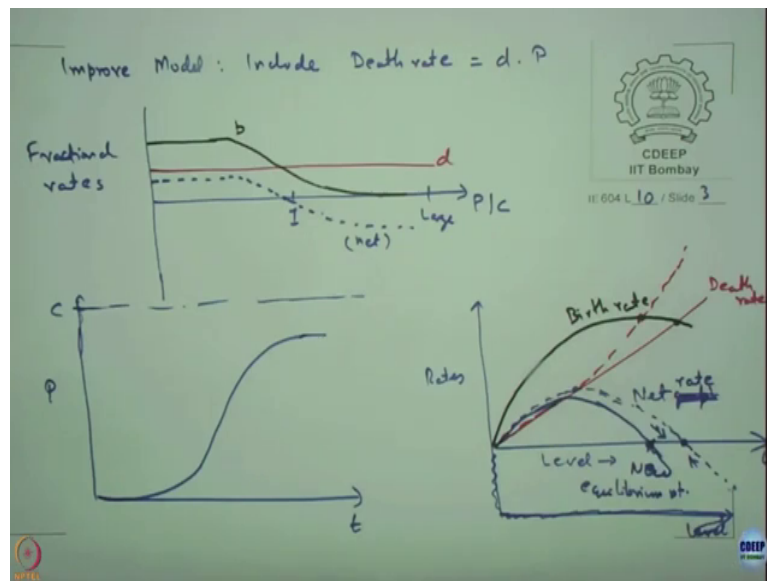 Improve Model : Include Death rate = d . P
CDEEP
IIT Bombay
IE 604 L 10 / Slide 3
Fractional
rates
b
d
1
Large
P/C
(net)
C
P
t
Birth rate
Death
rate
Rates
Net rate
Level →
New
equilibrium pt.
Level
NPTEL
CDEEP
IIT BOMBAY